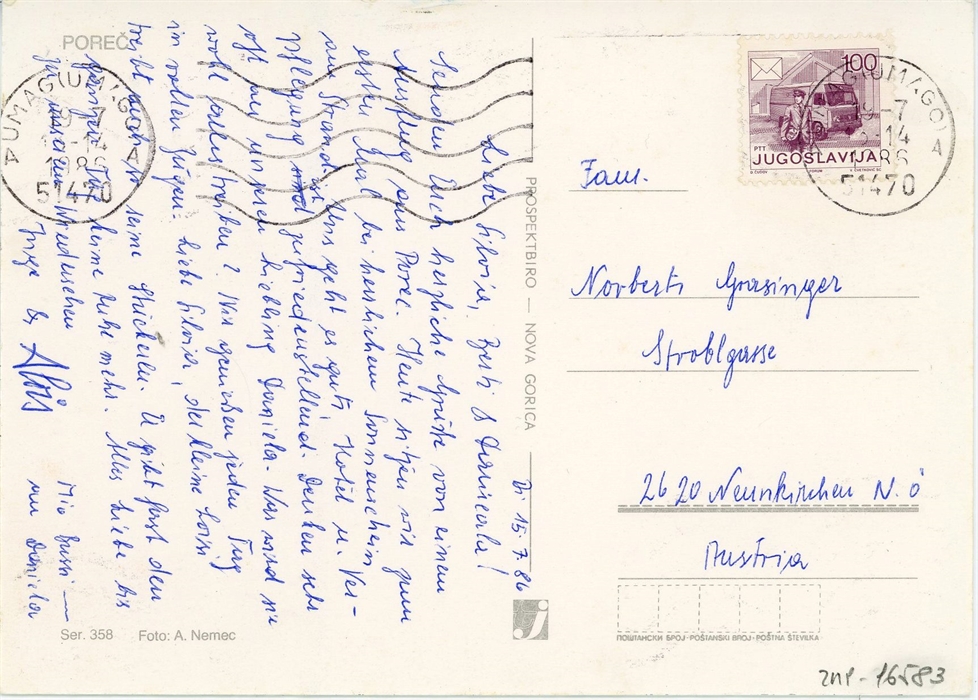 POREČ
Di 15.7.86
Liebe Silvia, Berti & Daniela!
Senden Euch herzliche Grüße von einem
Ausflug aus Porec. Heute sitzen wir zum
ersten Mal bei herrlichem Sonnenschein
am Strand. Uns geht es gut. Hotel u. Ver-
pflegung ist zufriedenstellend. Denken sehr
oft an unseren Liebling Daniela. Was wird sie
wohl alles treiben? Wir genießen jeden Tag
in vollen Zügen. Liebe Silvia, der kleine Loisi
treibt auch seine Stückeln. Er gibt fast den
ganzen Tag keine Ruhe mehr. Alles Liebe bis
zu unserem Wiedersehen
Inge & Alois
Mio Bussi —
an Daniela
Ser. 358 Foto: A. Nemec
PROSPEKTBIRO — NOVA GORICA
UMAG (UMAGO) A
-7
-14
1986
51470
100
PTT
JUGOSLAVIJA
UMAG (UMAGO) A
-7
-14
1986
51470
Fam.
Norbert Grasinger
Stroblgasse
2620 Neunkirchen N.Ö
Austria
ПОШТАНСКИ БРОЈ - POŠTANSKI BROJ - POŠTNA ŠTEVILKA
ZNP-16583